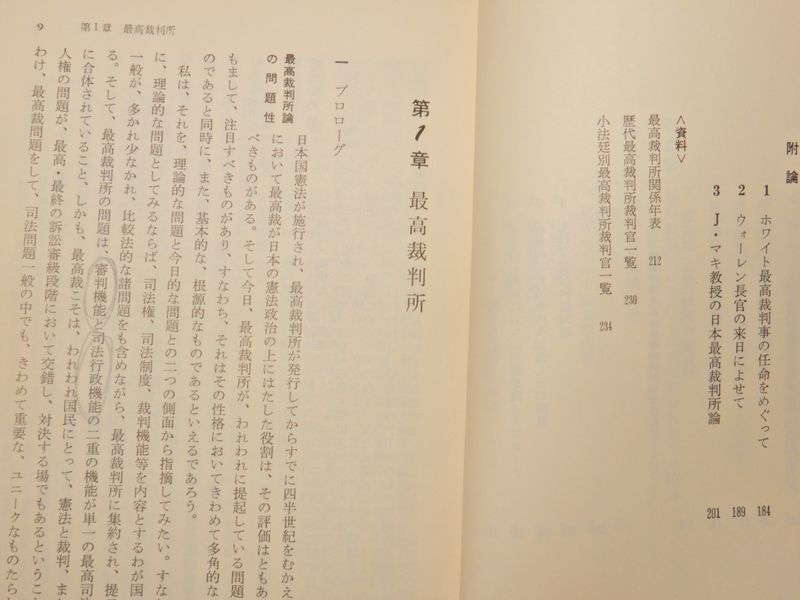 附論
1 ホワイト最高裁判事の任命をめぐって 184
2 ウォーレン長官の来日によせて 189
3 J・マキ教授の日本最高裁判所論 201
<資料>
最高裁判所関係年表 212
歴代最高裁判所裁判官一覧 230
小法廷別最高裁判所裁判官一覧 234
9 第1章 最高裁判所
第1章 最高裁判所
一 プロローグ
最高裁判所論
の問題性
日本国憲法が施行され、最高裁判所が発行してからすでに四半世紀をむかえ
において最高裁が日本の憲法政治の上にはたした役割は、その評価はともあ
べきものがある。そして今日、最高裁判所が、われわれに提起している問題
もまして、注目すべきものがあり、すなわち、それはその性格においてきわめて多角的な
のであると同時に、また、基本的な、根源的なものであるといえるであろう。
私は、それを、理論的な問題と今日的な問題との二つの側面から指摘してみたい。すな
に、理論的な問題としてみるならば、司法権、司法制度、裁判機能等を内容とするわが国
一般が、多かれ少なかれ、比較法的な諸問題をも含めながら、最高裁判所に集約され、提
る。そして、最高裁判所の問題は、審判機能と司法行政機能の二重の機能が単一の最高司
に合体されていること、しかも、最高裁こそは、われわれ国民にとって、憲法と裁判、ま
人権の問題が、最高・最終の訴訟審級段階において交錯し、対決する場でもあるというこ
わけ、最高裁問題をして、司法問題一般の中でも、きわめて重要な、ユニークなものたら